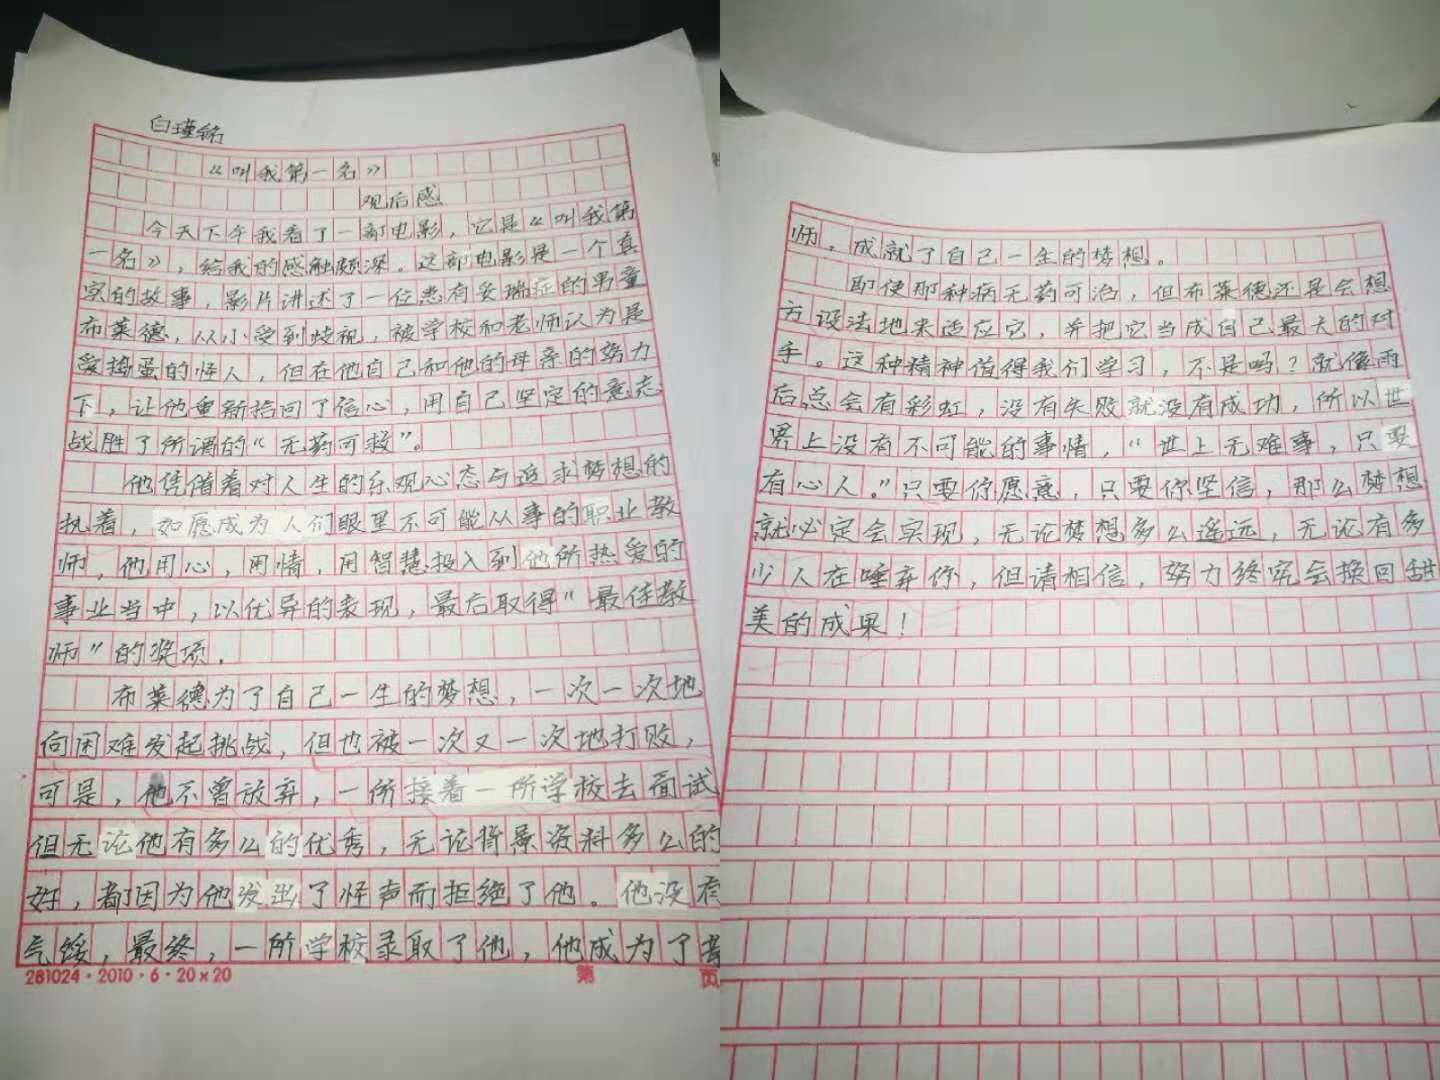 白瑾铭
《叫我第一名》
观后感
今天下午我看了一部电影，它是《叫我第
一名》，给我的感触颇深。这部电影是一个真
实的故事，影片讲述了一位患有妥瑞症的男童
布莱德，从小受到歧视，被学校和老师认为是
爱捣蛋的怪人，但在他自己和他的母亲的努力
下，让他重新拾回了信心，用自己坚定的意志
战胜了所谓的“无药可救”。
他凭借着对人生的乐观心态与追求梦想的
执着，如愿成为人们眼里不可能从事的职业教
师，他用心，用情，用智慧投入到他所热爱的
事业当中，以优异的表现，最后取得“最佳教
师”的奖项．
布莱德为了自己一生的梦想，一次一次地
向困难发起挑战，但也被一次又一次地打败，
可是，他不曾放弃，一所接着一所学校去面试
但无论他有多么的优秀，无论背景资料多么的
好，都因为他发出了怪声而拒绝了他。他没有
气馁，最终，一所学校录取了他，他成为了老
281024·2010·6·20×20
第 页
师，成就了自己一生的梦想。
即使那种病无药可治，但布莱德还是会想
方设法地来适应它，并把它当成自己最大的对
手。这种精神值得我们学习，不是吗？就像雨
后总会有彩虹，没有失败就没有成功，所以世
界上没有不可能的事情，“世上无难事，只要
有心人。”只要你愿意，只要你坚信，那么梦想
就必定会实现，无论梦想多么遥远，无论有多
少人在唾弃你，但请相信，努力终究会换回甜
美的成果！